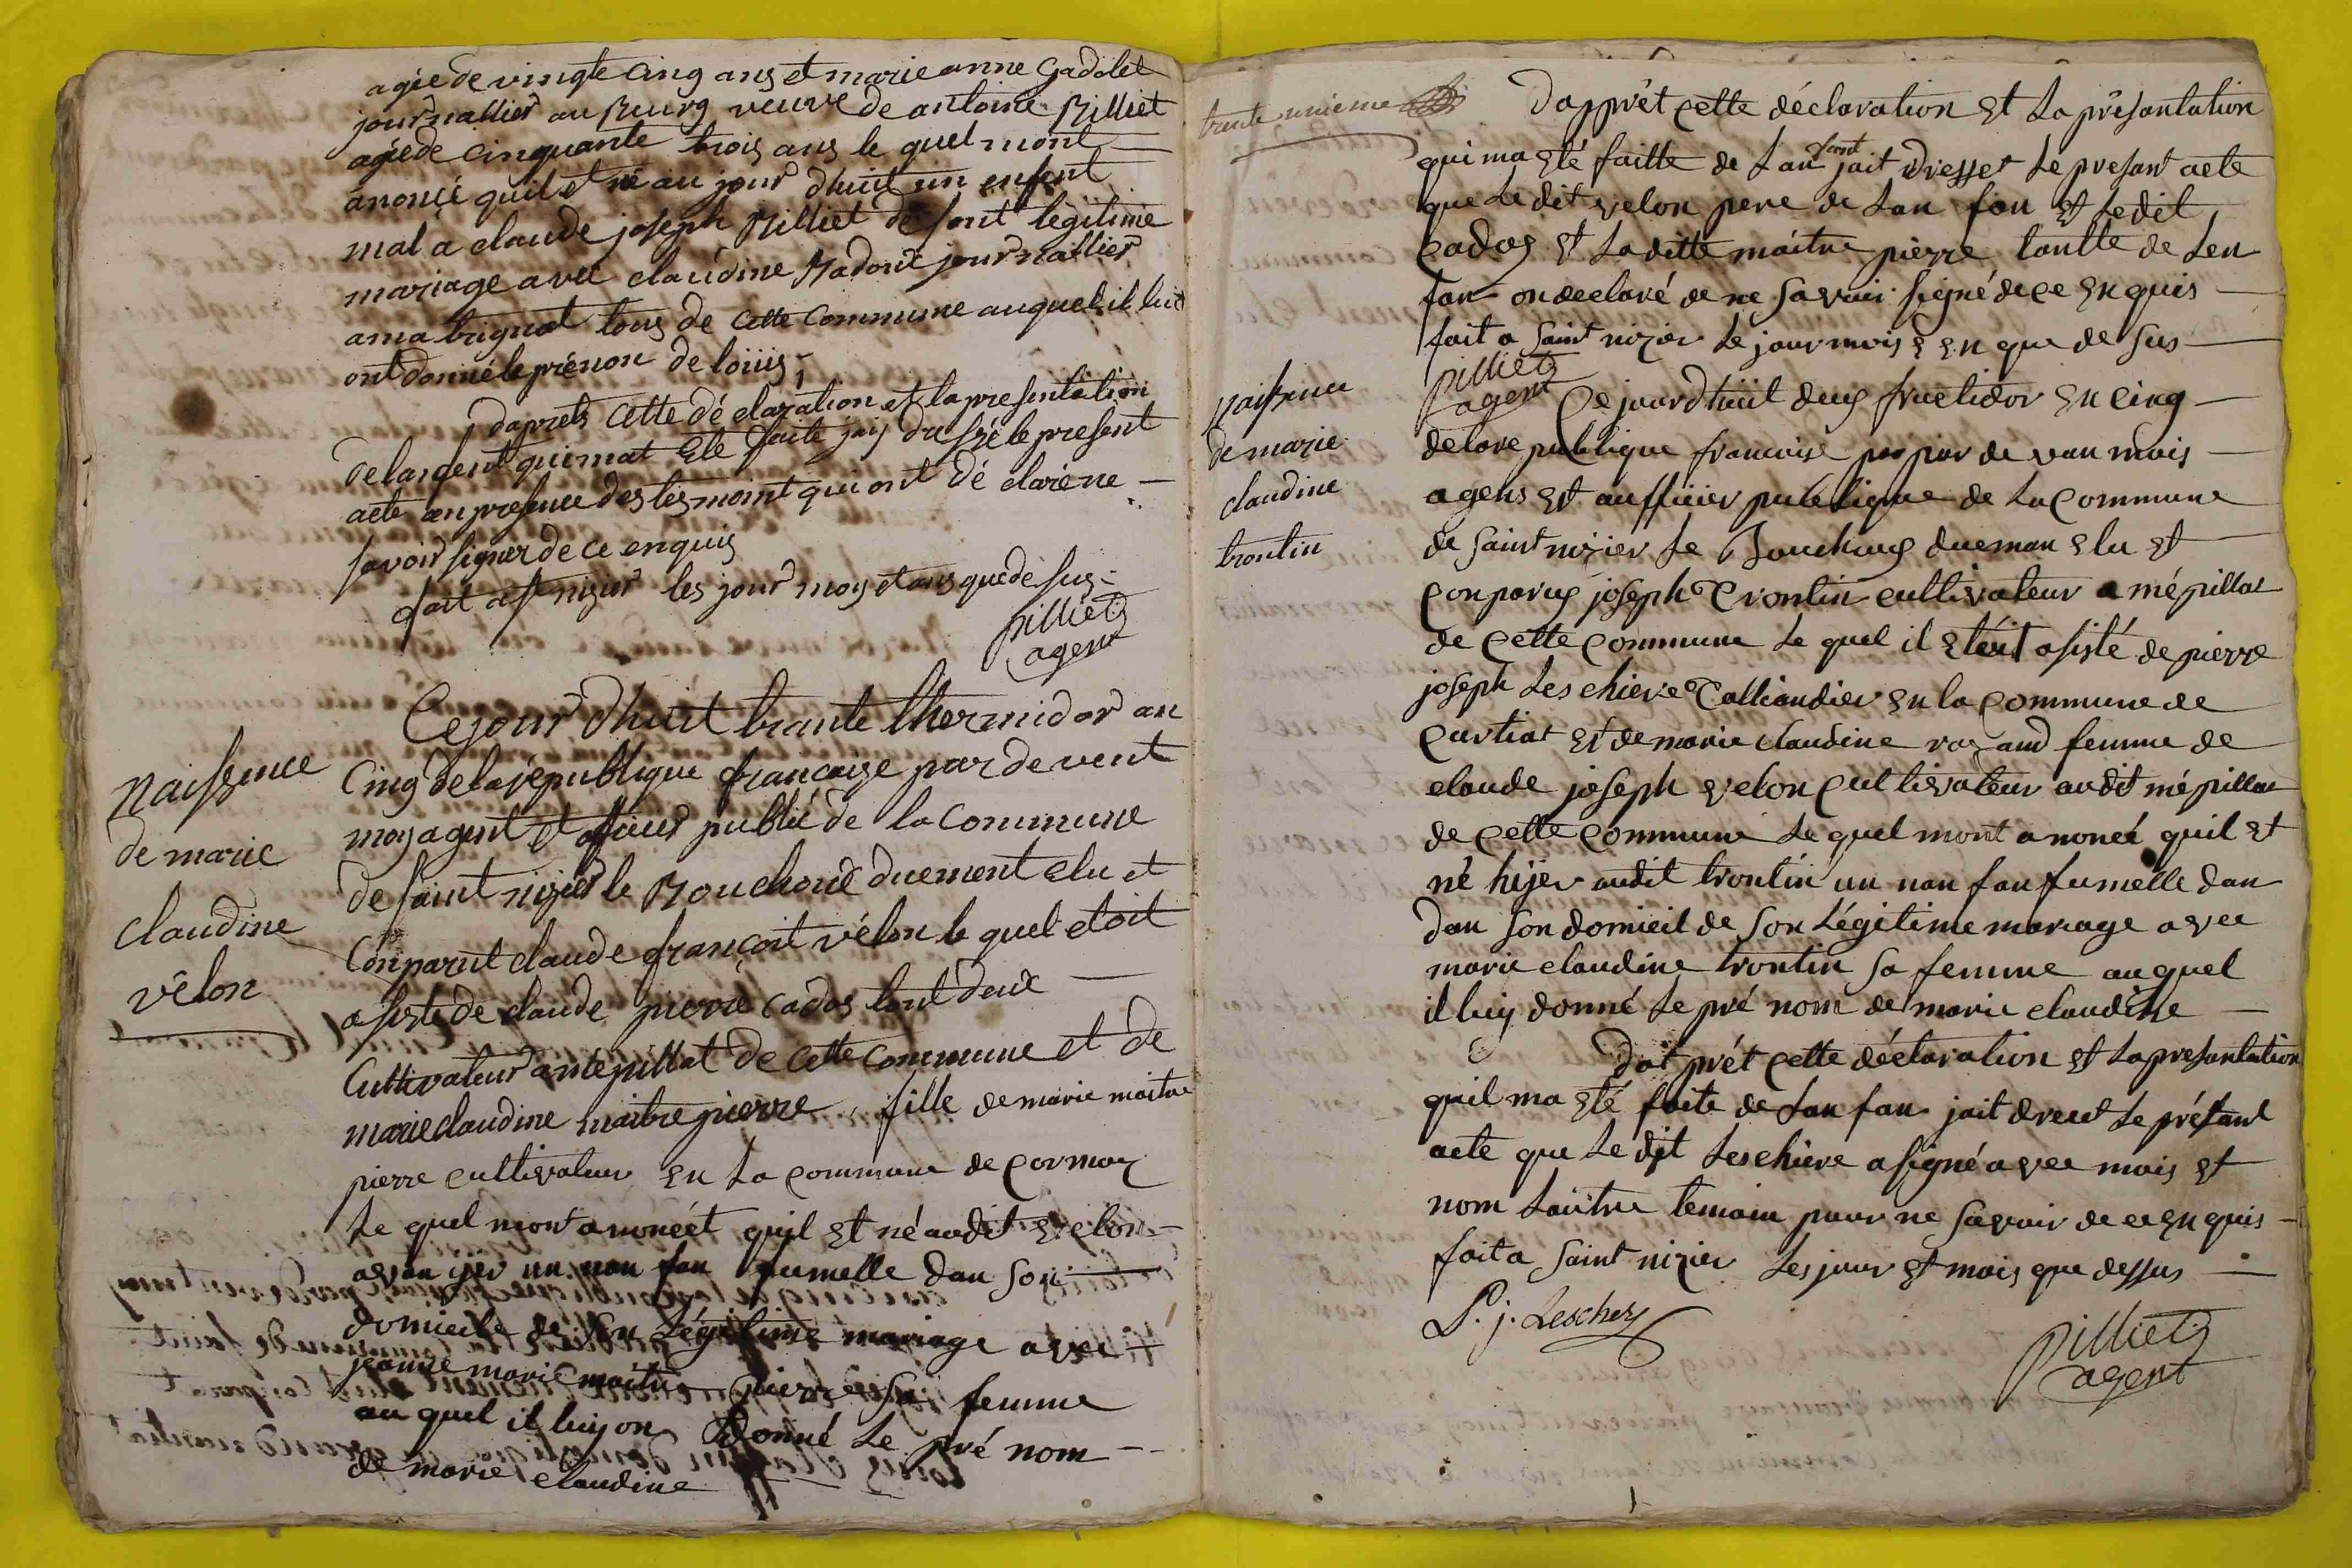 agée de vingte cinq ans et marie anne Gadolet
journallier au Bourg veuve de antoine Rilliet
agée de cinquante trois ans le quel mont
anoncé quil et né au jour dhuit un enfent
mal a claude joseph Rilliet de sont légitime
mariage avec claudine journallier
a tous de cette commune auquel il luit
ont donné le prénon de loüis
daprets cette dé claration et la presentation
de lanfent qui mat été faite jay dressé le present
acte en presence des tesmoint qui ont dé claré ne
savoir signer de ce enquis
fait a st nizier les jour mois et ans que de sus
pilliet
agent
naissence
de marie
claudine
vélon
Cejour dhuit trante thermidor an
Cinq de la république francaize par de vent
moy agent et officier public de la commune
de saint nizier le Bouchoud duement elu et
Conparut claude françoit vélon le quel etoit
asisté de claude pierre cadot tout deux
Cultivateur a mépillat de cette commune et de
marie claudine maitre pierre, fille de marie maitre
pierre cultivateur en la commune de cormoz
le quel mont anoncét quil et né audit velon
avan yer un nan fan fumelle dan son
domicile de son légitime mariage avec
jeanne marie maitre pierre sa femme
au quel il luy on donné le pré nom
de marie claudine
trente unieme
Dapprêt cette déclaration et la présantation
qui ma été faitte de lanfant jait dresser le presant acte
que le dit velon pere de lan fan et ledit
cados et laditte maitre pierre tantte de len
fan on declaré de ne savoir signé de ce enquis
fait a saint nizier le jour mois en que de sus
pilliet
agent
naissence
de marie
claudine
trontin
Ce jourdhuit deux fructidor en cinq
de lare publique francaise par de van mois
agens et aufficier publique de la commune
de saint nizier le Bouchoux dueman elu et
conparus joseph trontin cultivateur a mépillat
de cette commune le quel il étéit asisté de pierre
joseph leschiere talliandier en la commune de
curtiat et de marie claudine femme de
claude joseph velon cultivateur audit mépillat
de cette commune le quel mont anoncé quil et
né hijer audit trontin un nan fan fumelle dan
dan son domicil de son légitime mariage avec
marie claudine trontin sa femme auquel
il luy donné le pré nom de marie claudine
dat prét cette déclaration et la presantation
quil ma été faite de lan fan jait le présant
acte que le dit leschiere a signé avec mois et
nom lautre temoin pour ne savoir de ce enquis
fait a saint nizier les jour et mois que dessus
P. j. Leschez
pilliet
agent